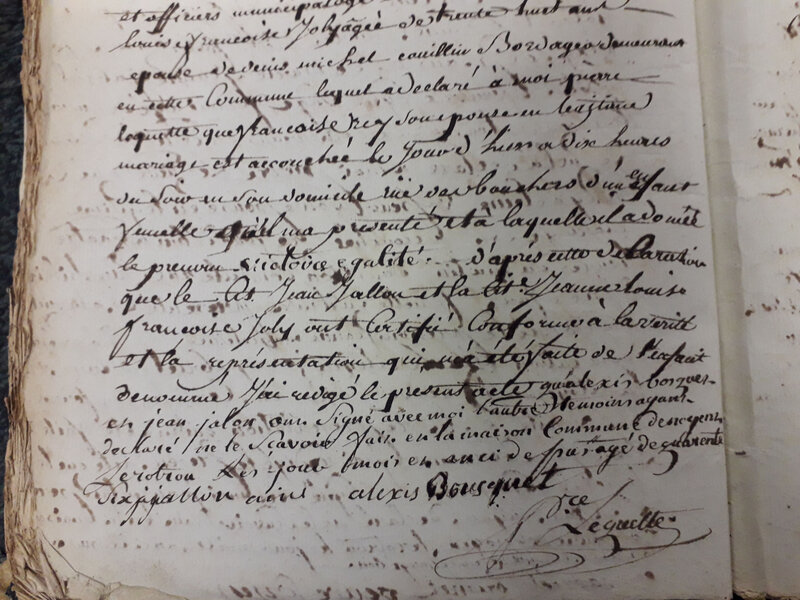 et officiers municipaux
louise francoise Joly agée de trente huit ans
epouse de denis michel cauillin Bordageo demeurant
en cette Commune lequel a declaré à moi pierre
loquette que francoise rey son epouse en legitime
mariage est accouchée le Jour d'hier a dix heures
du soir en son domicile rüe des bouchers d'un enfant
femelle qu'il m'a presenté et à laquelle il a donné
le prenom victoire egalité. d'après cette declaration
que le Cit. Jean Jallon et la Cit.e Jeanne louise
francoise Joly ont Certifié Conforme à la verité
et la représentation qui m'a été faite de l'enfant
denommé J'ai redigé le present acte qu'alexis bousquet
et jean jalon ont signé avec moi l'autre temoin ayant
declaré ne le Scavoir fait en la maison Commune de
les jour mois et an ci de paragé de quarente
six alexis Bousquet
p.re Lequette